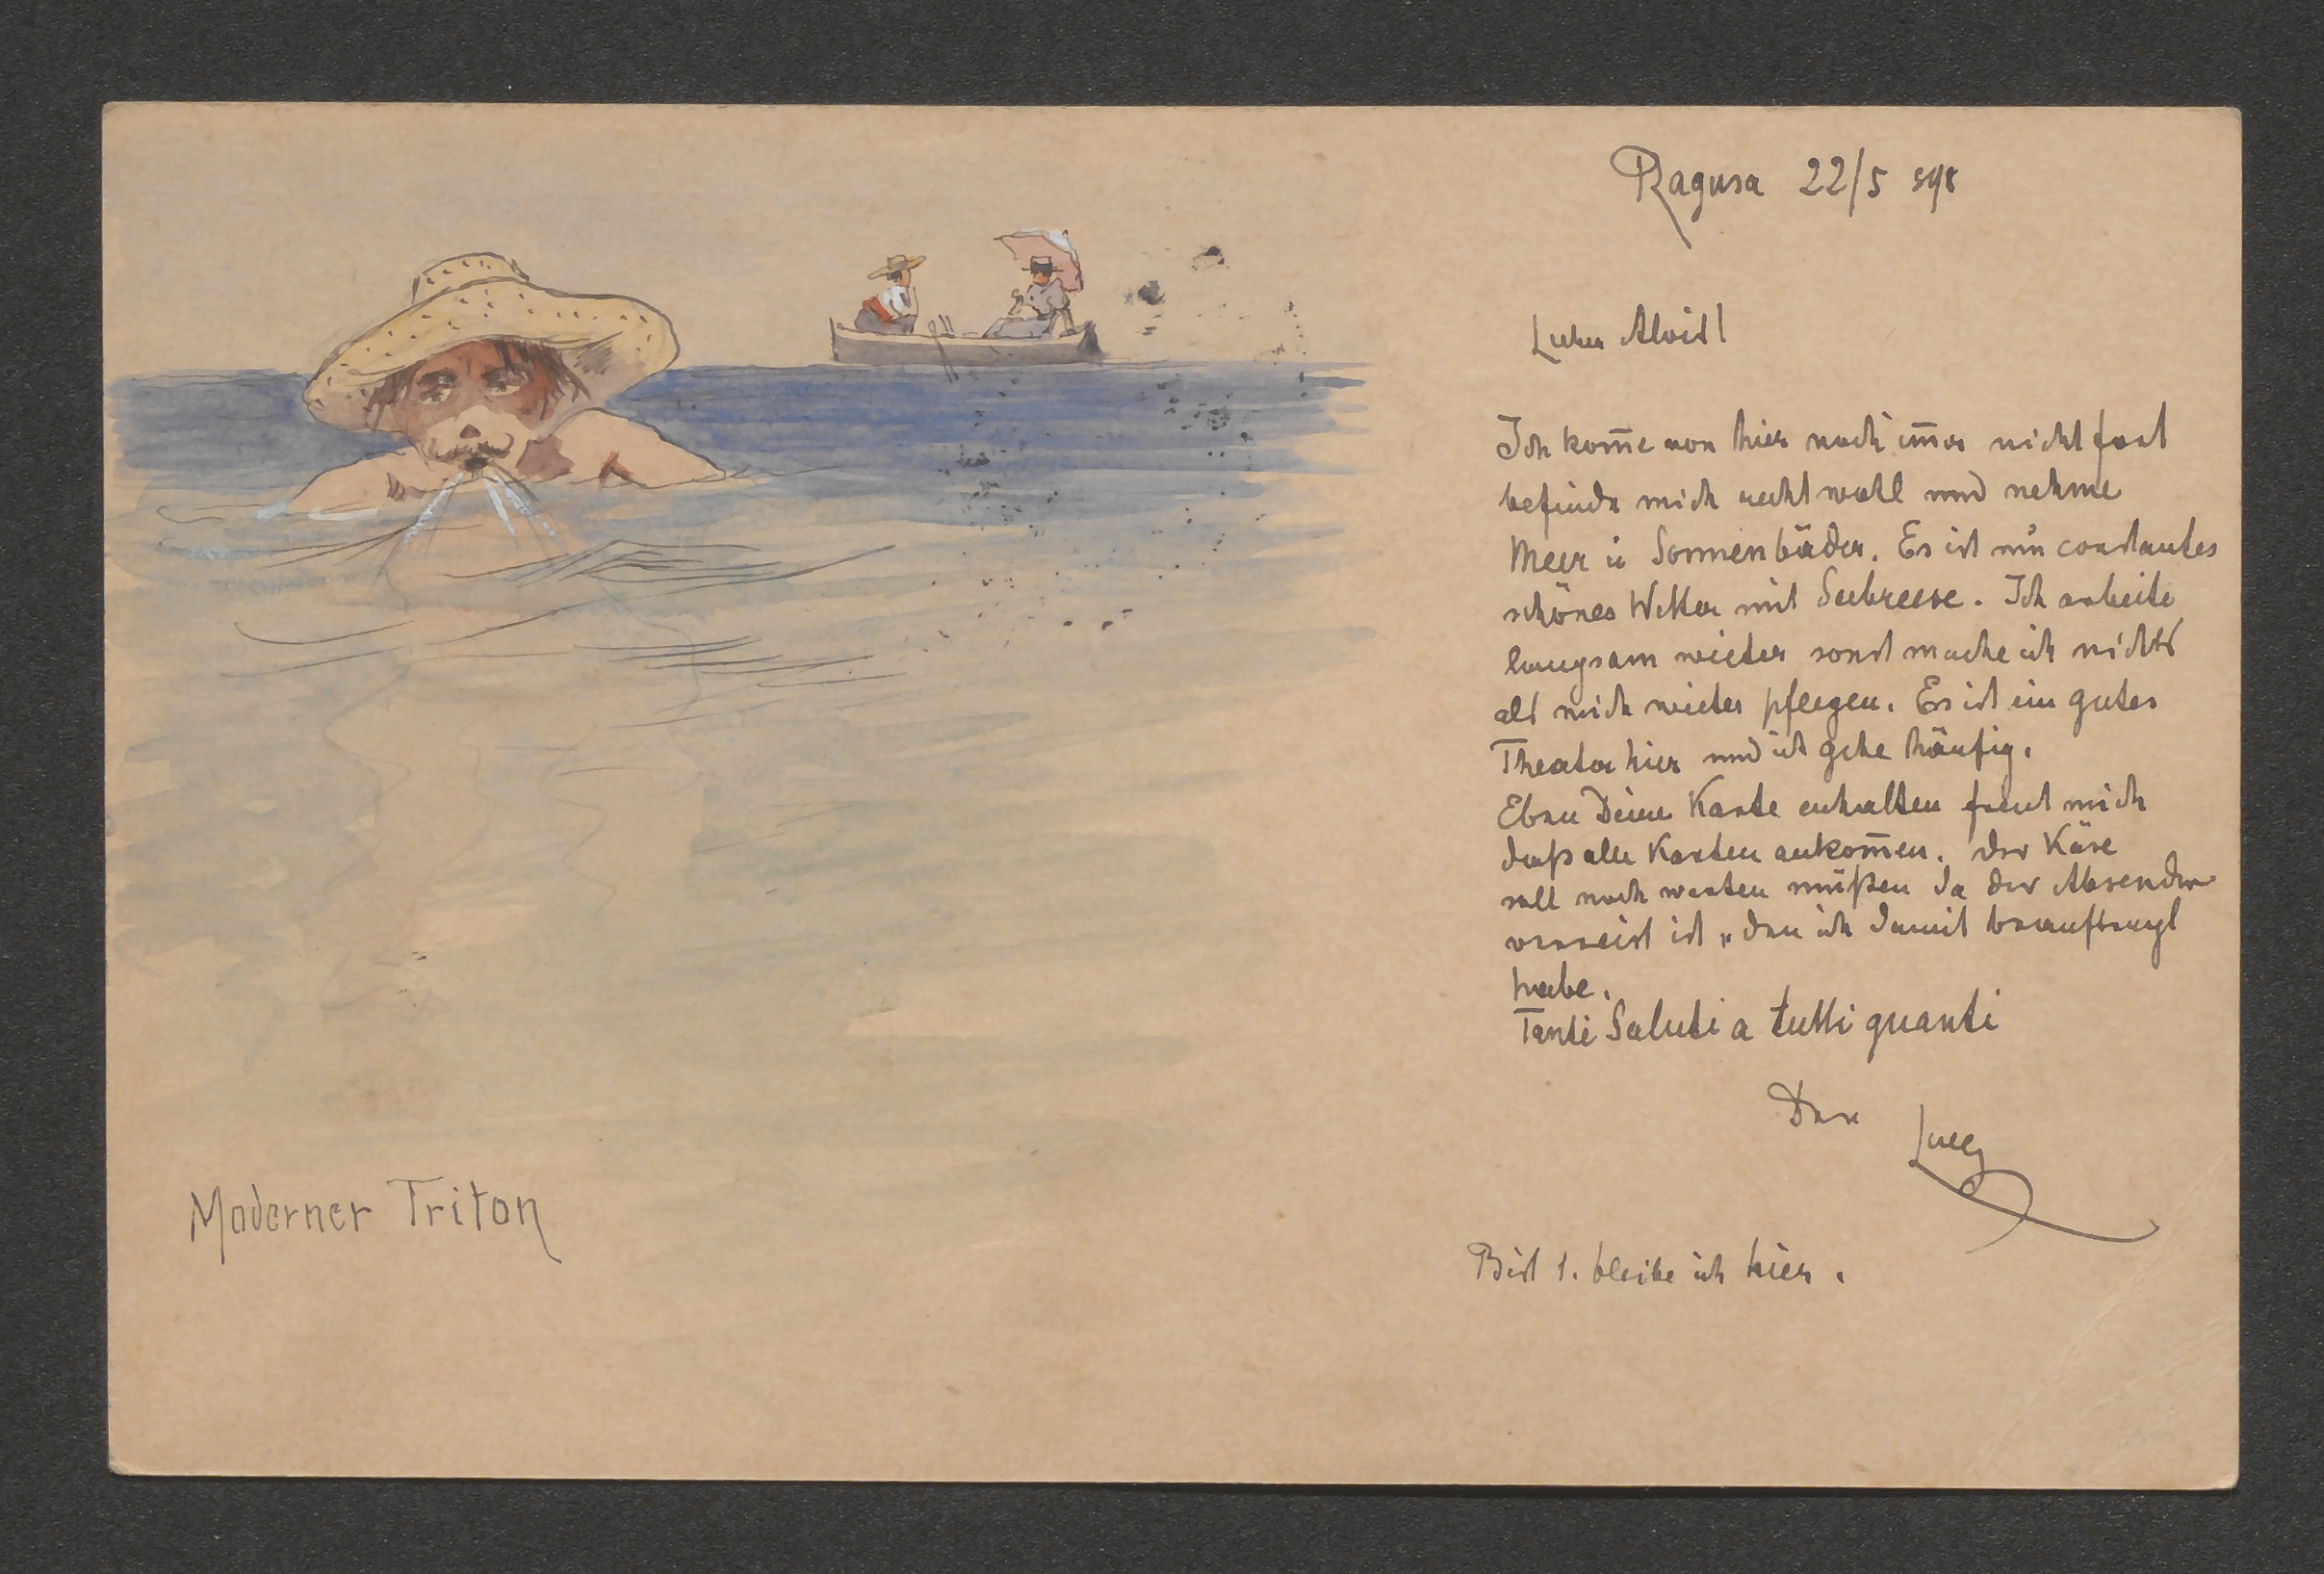 Ragusa 22/5 898
Lieber Alois!
Ich kom̅e von hier noch im̅er nicht fort
befinde mich recht wohl und nehme
Meer u Sonnenbäder. Es ist nun constantes
schönes Wetter mit Seebreese. Ich arbeite
langsam wieder sonst mache ich nichts
als mich wieder pflegen. Es ist ein gutes
Theater hier und ich gehe häufig.
Eben Deine Karte erhalten freut mich
daß alle Karten ankom̅en. Der Käse
soll noch warten müßen da der Absender
verreist ist, den ich damit beauftragt
habe.
Tanti Saluti a tutti quanti
Dein
Moderner Triton
Bis 1. bleibe ich hier.